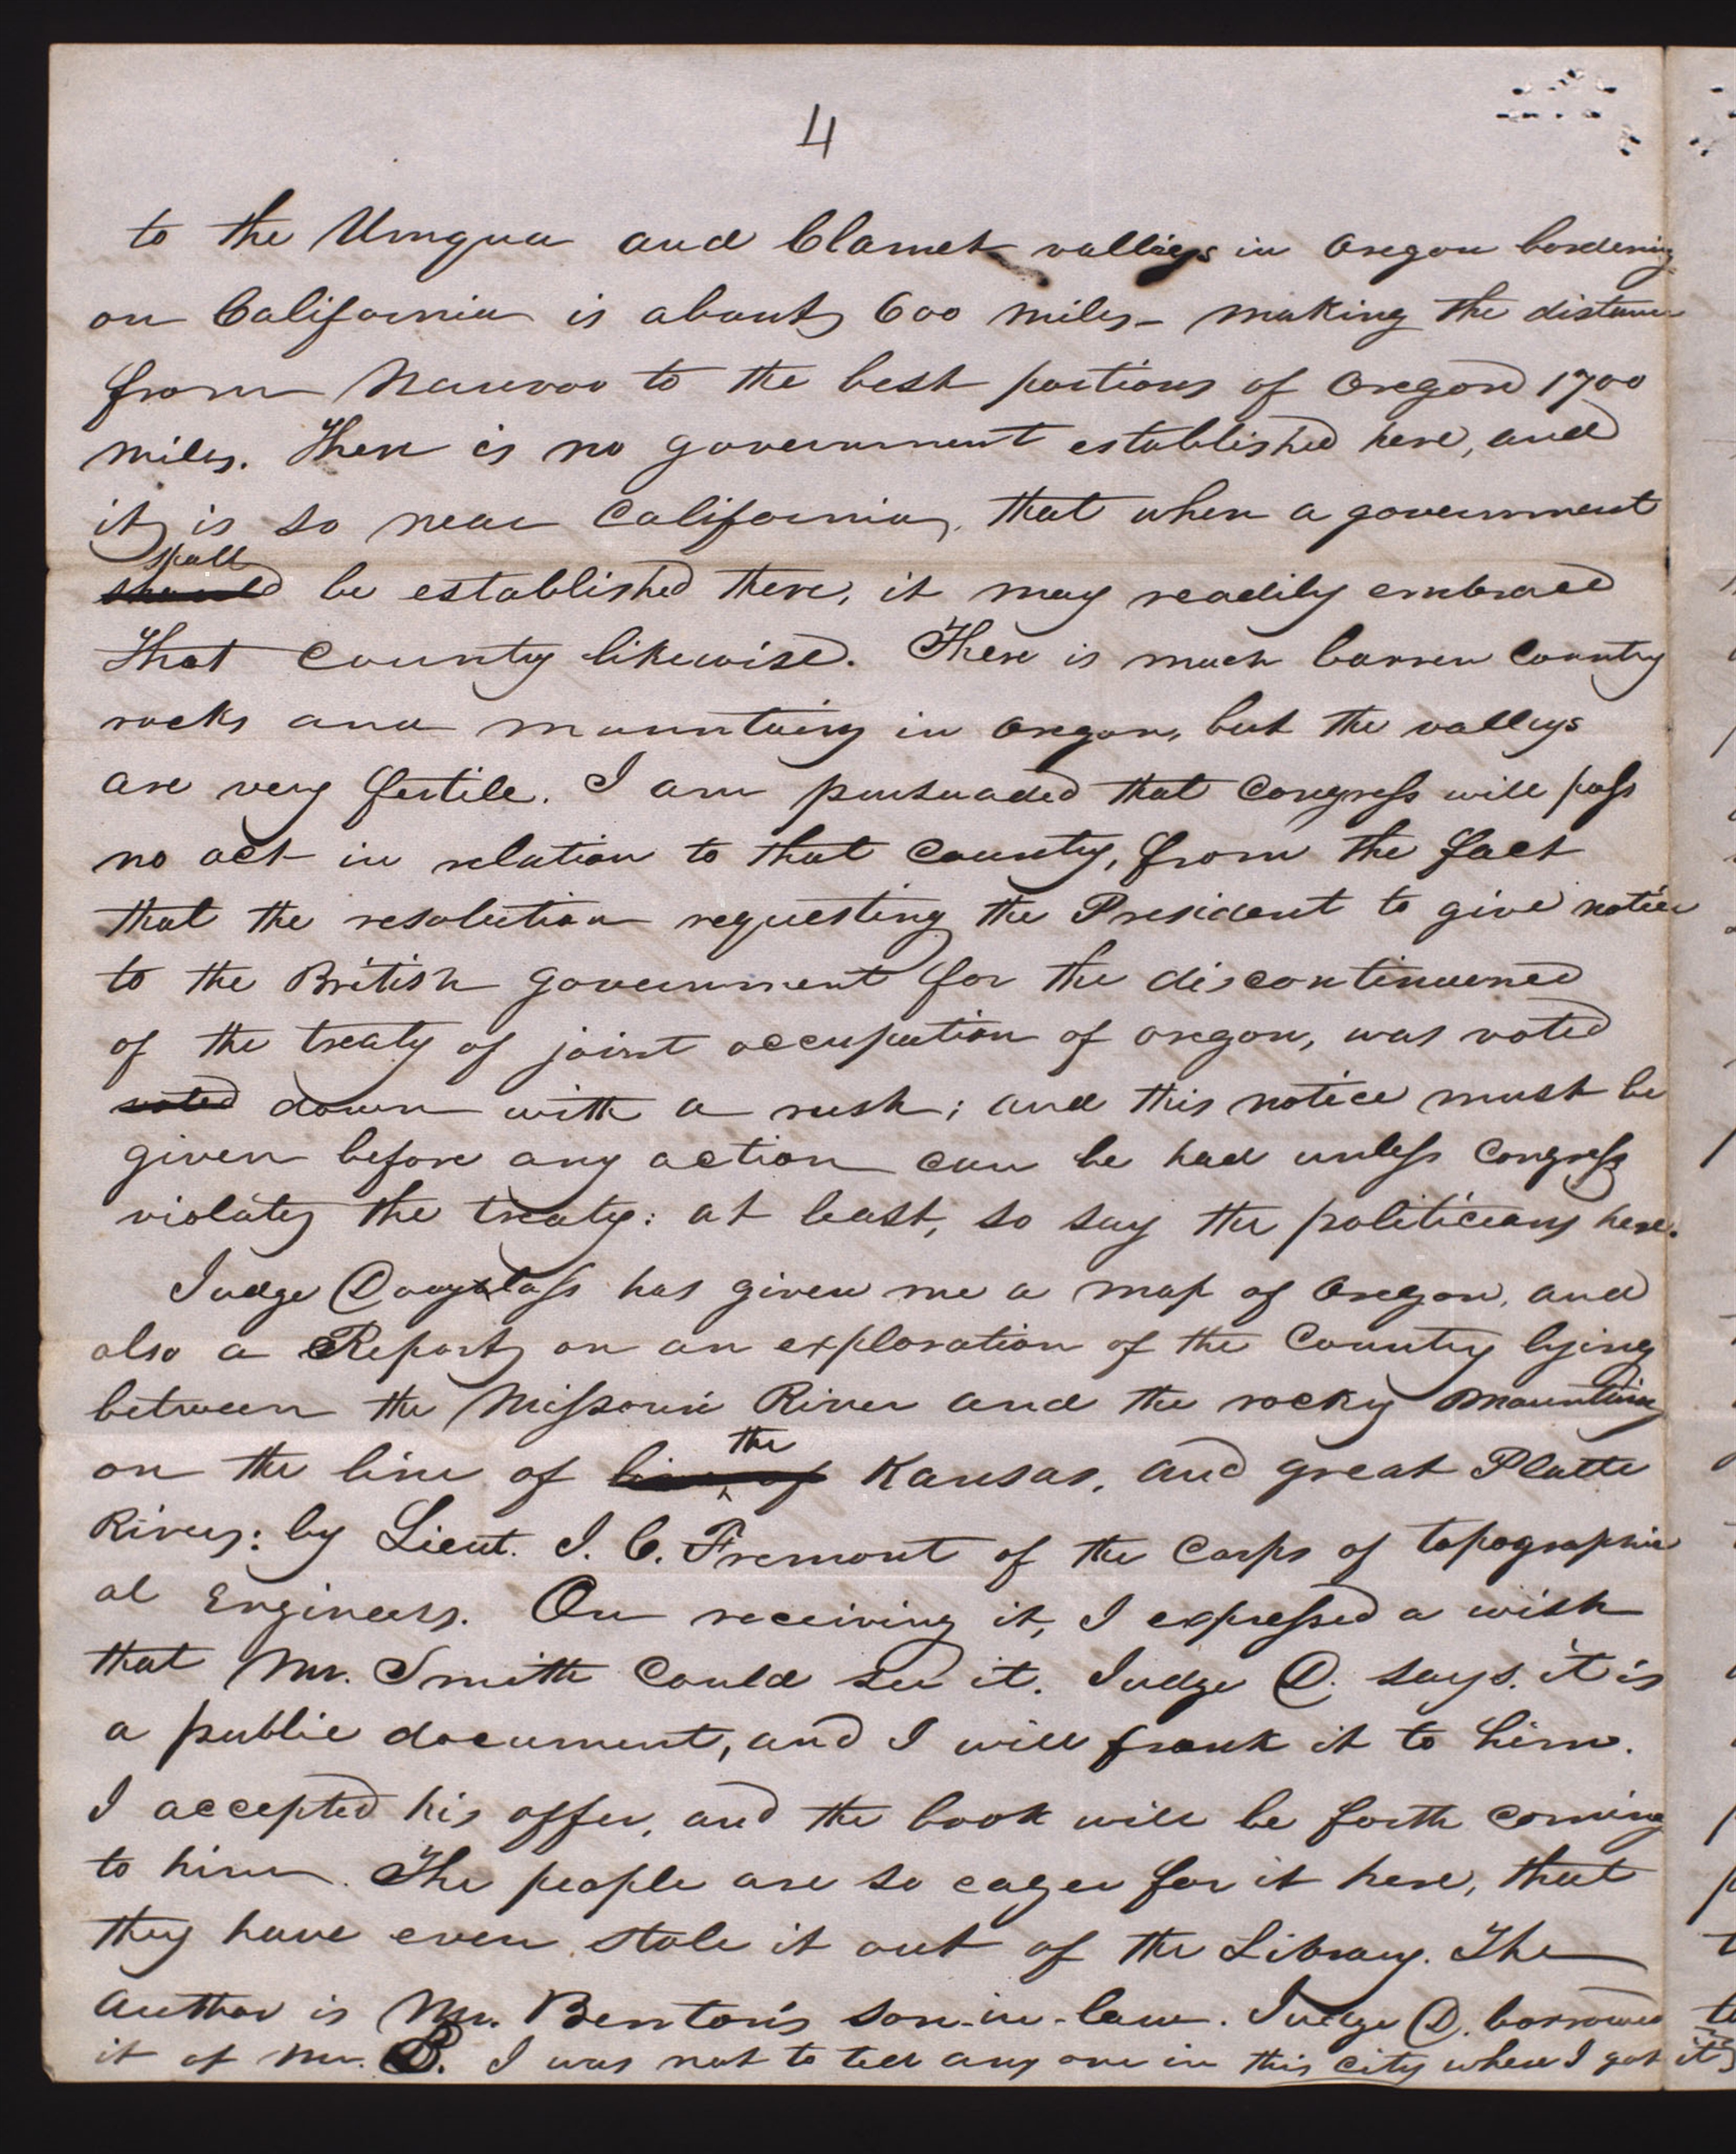 4
to the Umqua and Clamet valleys in Oregon bordering
on California is about 600 miles - making the distance
from Nauvoo to the best portions of Oregon 1700
miles. There is no government established here, and
it is so near California, that when a government
shall
should be established there, it may readily embrace
that country likewise. There is much barren country
rocks and mountains in Oregon, but the valleys
are very fertile. I am pursuaded that Congress will pass
no act in relation to that country, from the fact
that the resolution requesting the President to give notice
to the British government for the discontinuence
of the treaty of joint occupation of oregon, was voted
voted down with a rush; and this notice must be
given before any action can be had unless Congress
violates the treaty: at least, so say the politicians here.
Judge Douglass has given me a map of Oregon, and
also a Report on an exploration of the Country lying
between the Missouri River and the rocky mountains
the
on the line of line of Kansas, and great Platte
Rivers: by Lieut. J. C. Fremont of the Corps of topographic
al Engineers. On receiving it, I expressed a wish
that Mr. Smith could see it. Judge D. says. it is
a public document, and I will frank it to him.
I accepted his offer, and the book will be forth coming
to him. The people are so eager for it here, that
they have even stole it out of the Library. The
author is Mr. Benton's son-in-law. Judge D. borrowed
it of Mr. B. I was not to tell any one in this city where I got it